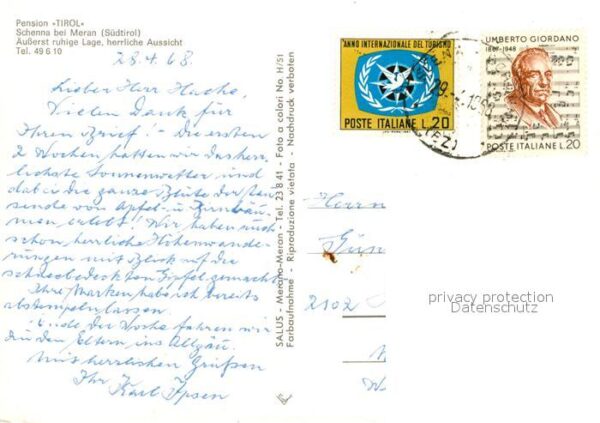 Pension »TIROL«
Schenna bei Meran (Südtirol)
Äußerst ruhige Lage, herrliche Aussicht
Tel. 49 6 10
28.4.68.
Lieber Herr Hache,
Vielen Dank für
Ihren Brief! - Die ersten
2 Wochen hatten wir das herr-
lichste Sonnenwetter und
dabei die ganze Blüte der Tau-
sende von Apfel- u. Birnbäu-
men erlebt! Wir haben auch
schon herrliche Höhenwande-
rungen mit Blick auf die
schneebedeckten Gipfel gemacht.
Ihre Marken habe ich bereits
abstempeln lassen.
Ende der Woche fahren wir
zu den Eltern ins Allgäu.
Mit herzlichen Grüßen
Ihr
Karl Ipsen
SALUS - Merano-Meran - Tel. 23 8 41 - Foto a colori No. H/51
Farbaufnahme - Riproduzione vietata - Nachdruck verboten
ANNO INTERNAZIONALE DEL TURISMO
POSTE ITALIANE L.20
UMBERTO GIORDANO
1867-1948
POSTE ITALIANE L.20
(BZ)
Herrn
Gün
2102
privacy protection
Datenschutz